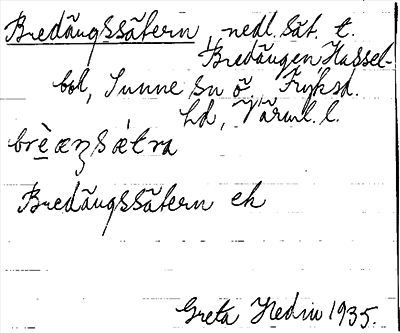 Bredängssätern, nedl. sät. t.
Bredängen Hassel-
bol, Sunne sn Ö Fryksd.
hd, Värml. l.
brèæŋsǽtra
Bredängssätern ek
Greta Hedin 1935.